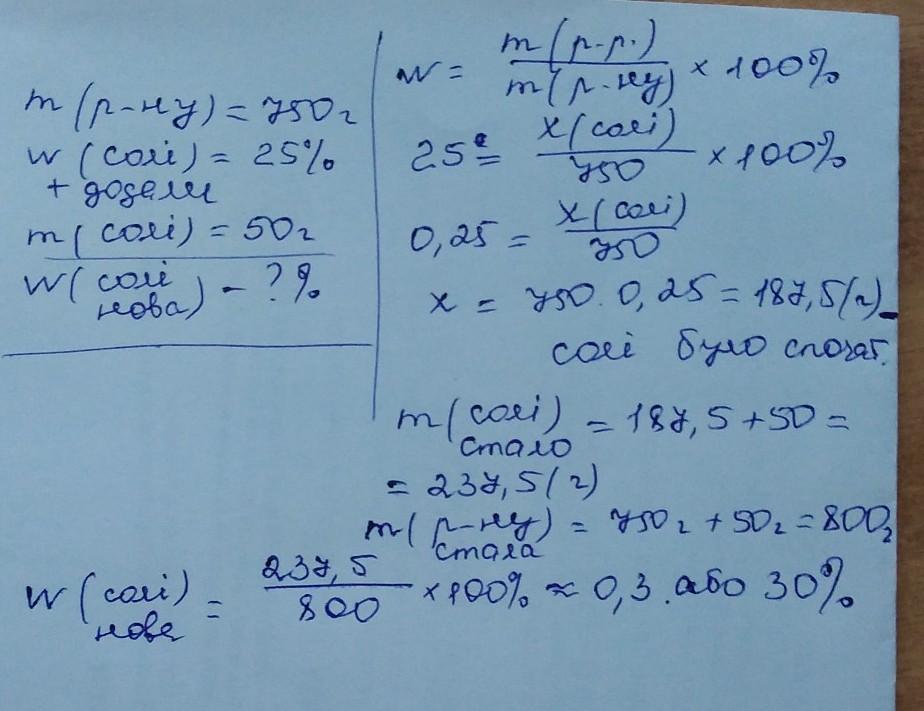 m(р-ну) = 750г
w(солі) = 25%
+ додали
m(солі) = 50г
w(солі нова) - ?%
w = m(р.р.) / m(р-ну) × 100%
25 = x(солі) / 750 × 100%
0,25 = x(солі) / 750
x = 750 · 0,25 = 187,5(г) -
солі було спочат.
m(солі) стало = 187,5 + 50 =
= 237,5(г)
m(р-ну) стала = 750г + 50г = 800г
w(солі) нова = 237,5 / 800 × 100% ≈ 0,3. або 30%